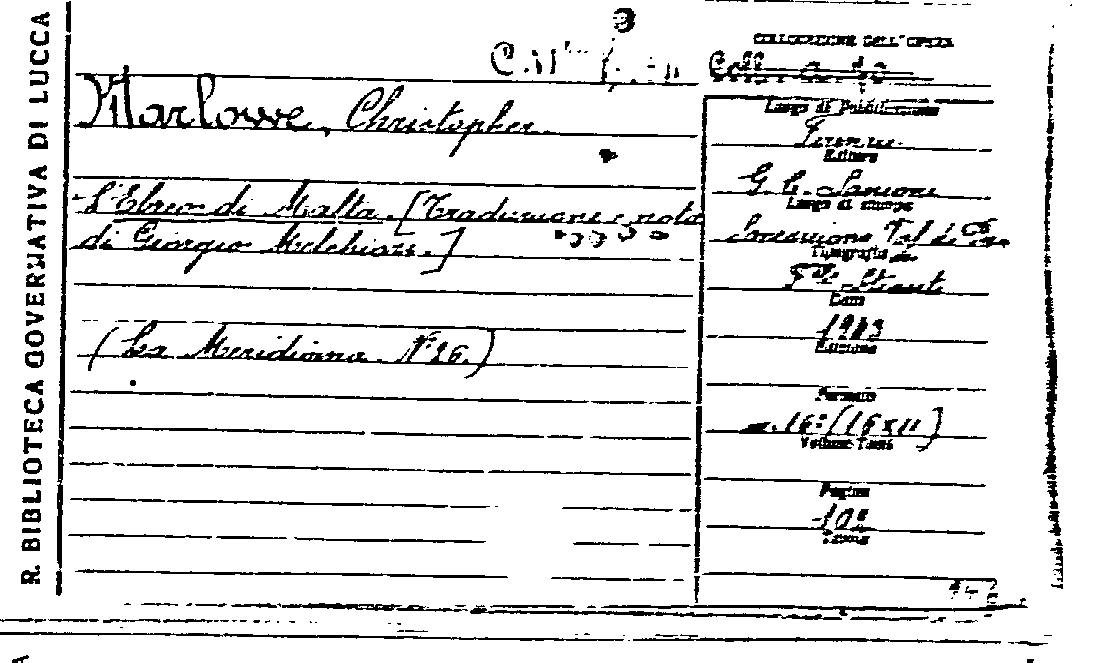 R. BIBLIOTECA GOVERNATIVA DI LUCCA
COLLOCAZIONE DELL'OPERA
Marlowe, Christopher
L'Ebreo di Malta. [Traduzione e note
di Giorgio Melchiori.]
(La Meridiana N° 26.)
Luogo di Pubblicazione
Firenze
Editore
G. C. Sansoni
Luogo di stampa
Tipografia
Data
1943
Edizione
Formato
16° (16x11)
Volume Tomi
Pagine
Tavole